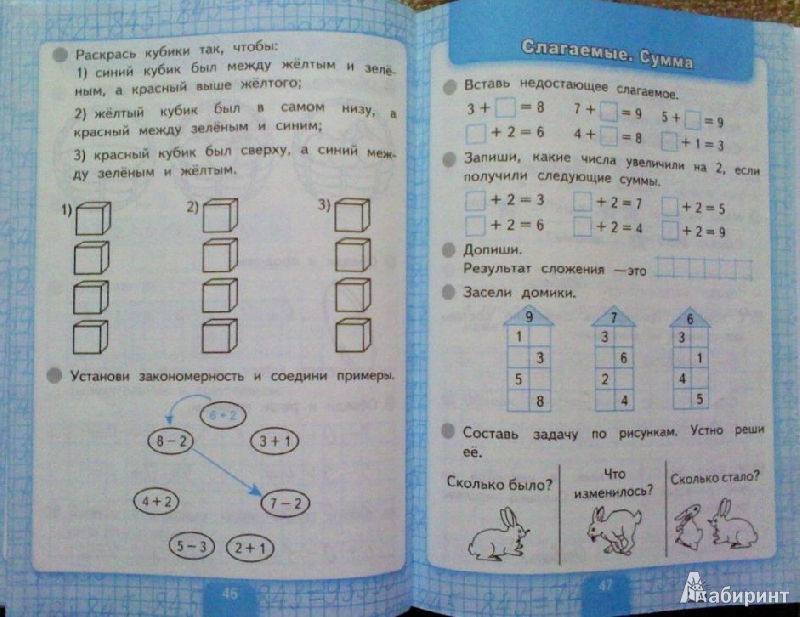 Раскрась кубики так, чтобы:
1) синий кубик был между жёлтым и зелё-
ным, а красный выше жёлтого;
2) жёлтый кубик был в самом низу, а
красный между зелёным и синим;
3) красный кубик был сверху, а синий меж-
ду зелёным и жёлтым.
1) 2) 3)
Установи закономерность и соедини примеры.
6+2
8-2 3+1
4+2 7-2
5-3 2+1
46
Слагаемые. Сумма
Вставь недостающее слагаемое.
3 + = 8 7 + = 9 5 + = 9
+ 2 = 6 4 + = 8 + 1 = 3
Запиши, какие числа увеличили на 2, если
получили следующие суммы.
+ 2 = 3 + 2 = 7 + 2 = 5
+ 2 = 6 + 2 = 4 + 2 = 9
Допиши.
Результат сложения —это
Засели домики.
9 7 6
1 3 3
3 6 1
5 2 4
8 4 5
Составь задачу по рисункам. Устно реши
её.
Сколько было? Что изменилось? Сколько стало?
47
Лабиринт